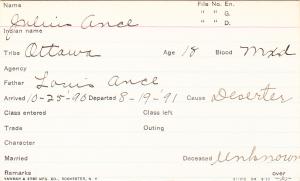 Name File No. En.
" " G.
Julius Ance " " D.
Indian name
Tribe Ottawa Age 18 Blood Mxd
Agency
Father Louis Ance
Arrived 10-25-'90 Departed 8-19-'91 Cause Deserter
Class entered Class left
Trade Outing
Character
Married Deceased Unknown
Remarks over